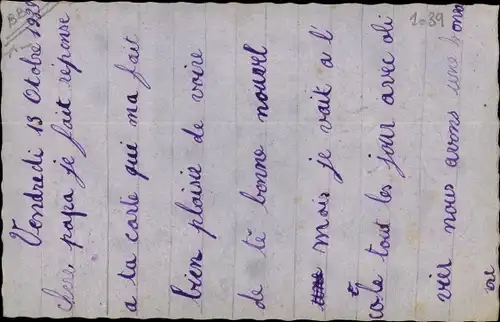 Vendredi 13 Octobre
chere papa je fait réponse
a ta carte qui ma fait
bien plaisir de voire
de tè bonne nouvel
mois je vait a l'
école tout les jour avec oli
vier nous avons une bonne
1039